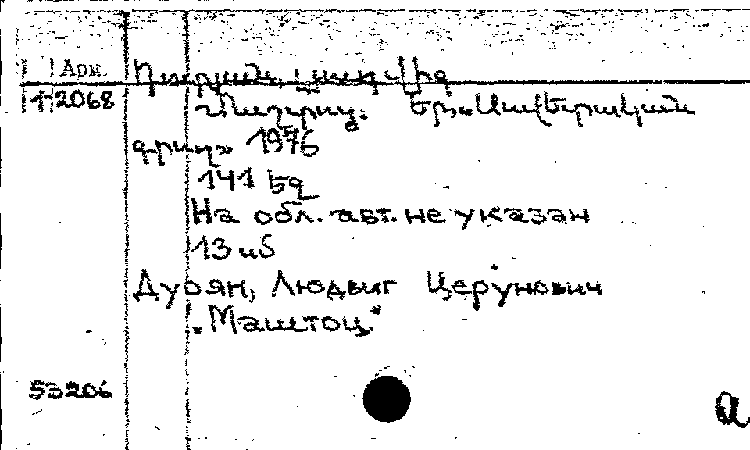 Арм. Դուրյան, Լյուդվիգ
1-2068 «Մաշտոց». Եր., «Սովետական
գրող» 1976
141 էջ
На обл. авт. не указан
13 սմ
Дурян, Людвиг Церунович
"Маштоц"
53206
а